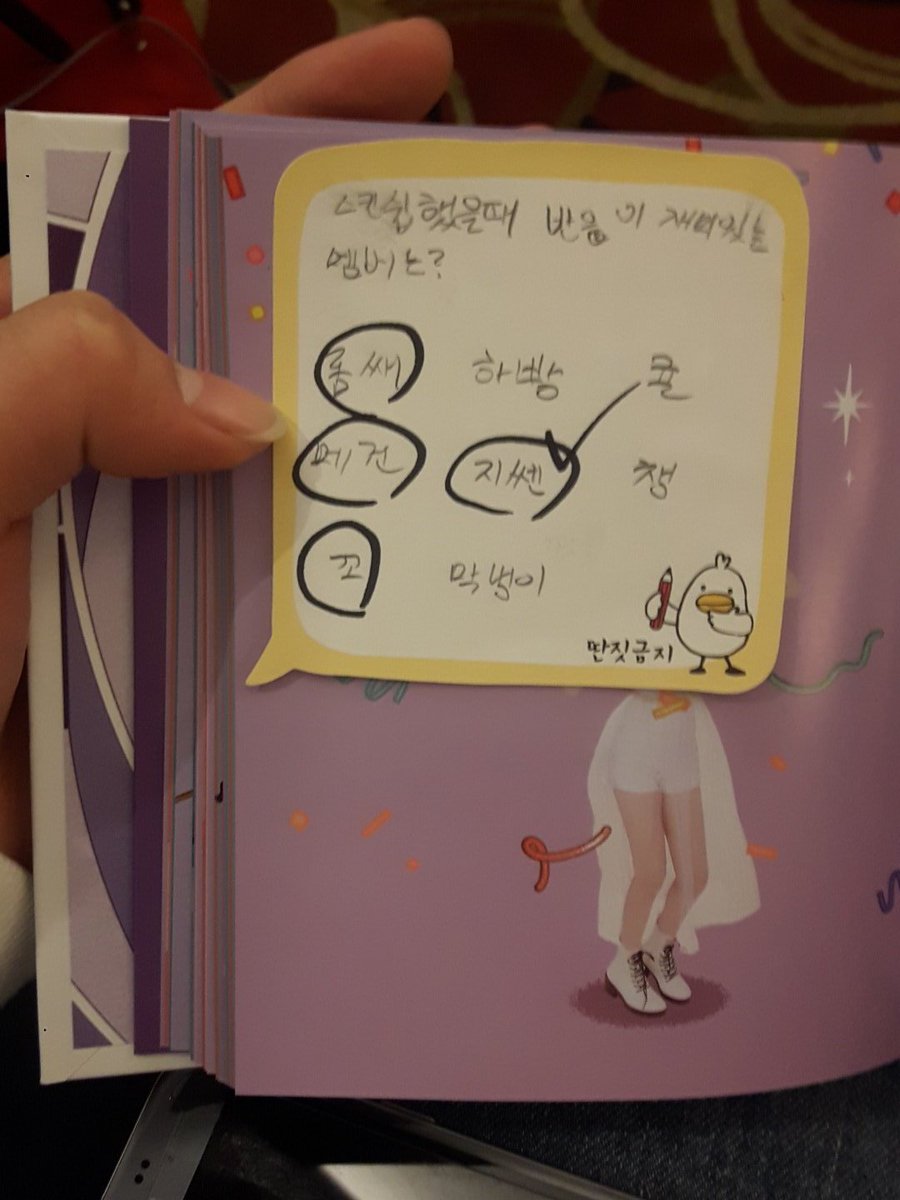 스킨쉽했을때 반응이 재미있는
멤버는?
롬쌔 하빵 쿨
메건 지쎈 챙
꼬 막넝이
딴짓금지